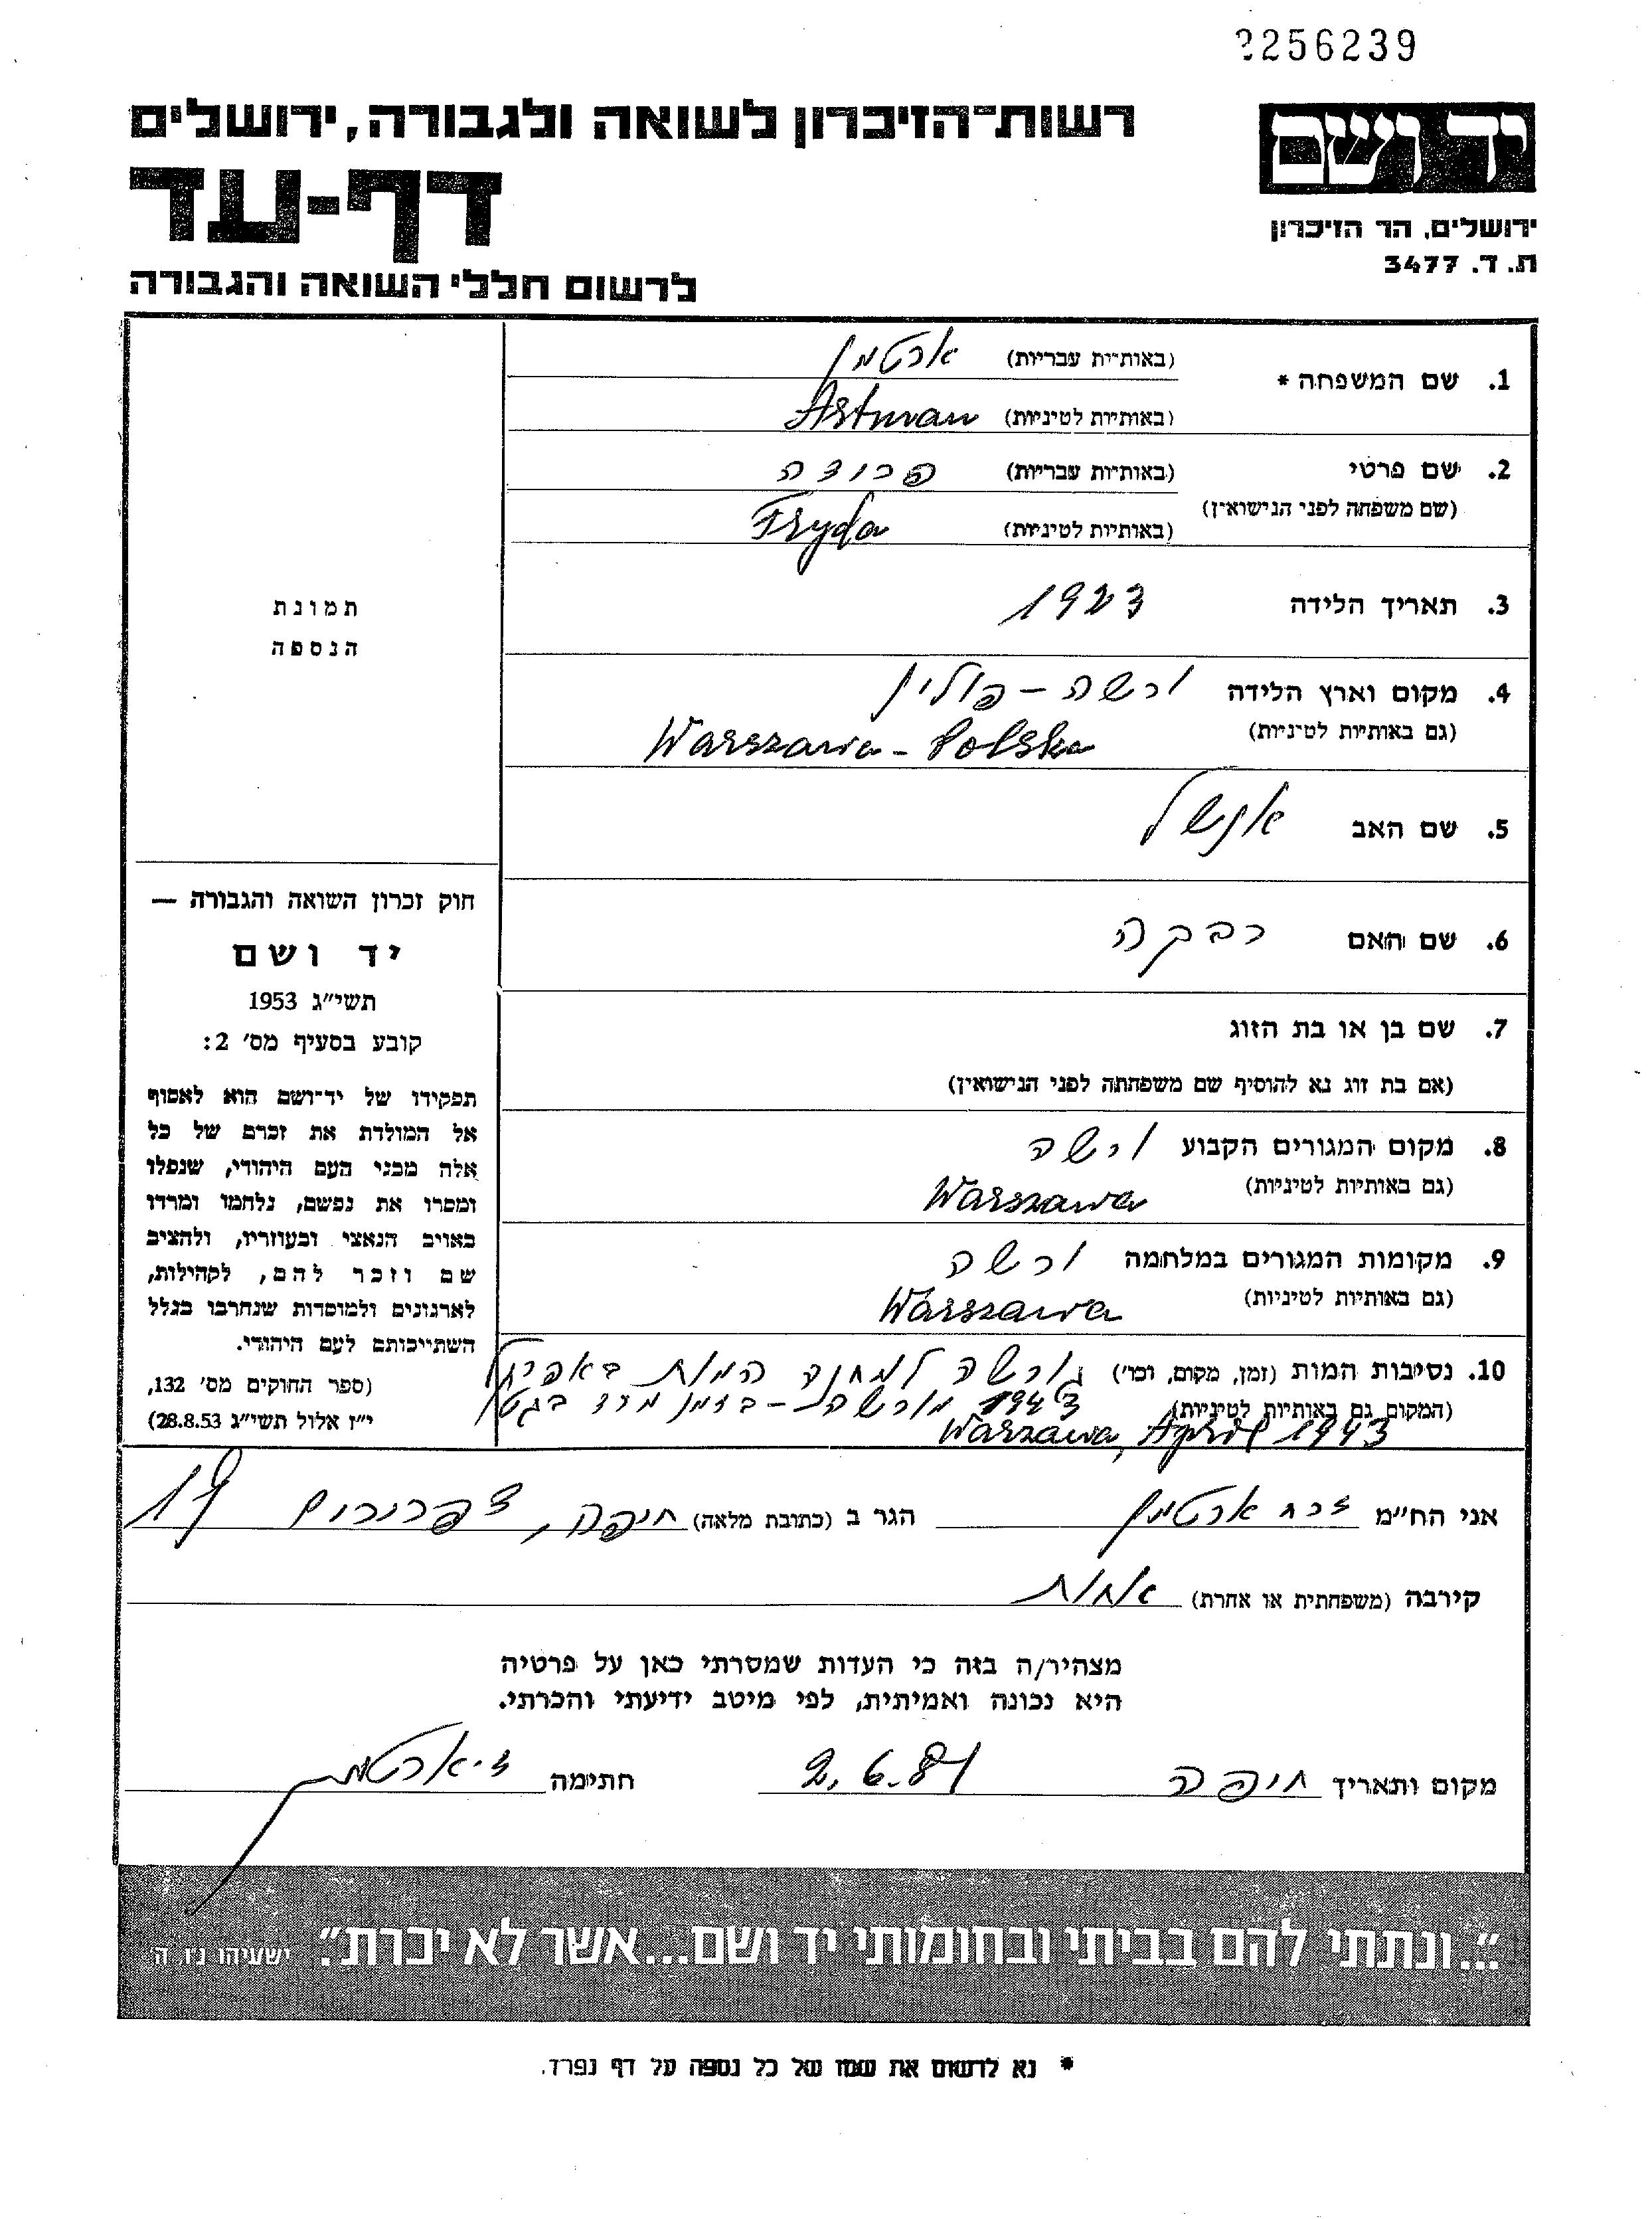 2256239
רשות־הזיכרון לשואה ולגבורה, ירושלים
דף-עד
לרשום חללי השואה והגבורה
יד ושם
ירושלים, הר הזיכרון
ת. ד. 3477
1. שם המשפחה *
(באותיות עבריות) ארטמן
(באותיות לטיניות) Artman
2. שם פרטי
(שם משפחה לפני הנישואין)
(באותיות עבריות)
(באותיות לטיניות) Fryda
3. תאריך הלידה 1923
4. מקום וארץ הלידה ורשה – פולין
(גם באותיות לטיניות) Warszawa - Polska
5. שם האב אנשל
6. שם האם רבקה
7. שם בן או בת הזוג
(אם בת זוג נא להוסיף שם משפחתה לפני הנישואין)
8. מקום המגורים הקבוע ורשה
(גם באותיות לטיניות) Warszawa
9. מקומות המגורים במלחמה ורשה
(גם באותיות לטיניות) Warszawa
10. נסיבות המות (זמן, מקום, וכו') גורשה למחנה המות באפריל
(המקום גם באותיות לטיניות) 1943 מורשה – בזמן מרד בגטו
Warszawa, April 1943
תמונת
הנספה
חוק זכרון השואה והגבורה —
יד ושם
תשי״ג 1953
קובע בסעיף מס' 2:
תפקידו של יד־ושם הוא לאסוף
אל המולדת את זכרם של כל
אלה מבני העם היהודי, שנפלו
ומסרו את נפשם, נלחמו ומרדו
באויב הנאצי ובעוזריו, ולהציב
שם וזכר להם, לקהילות,
לארגונים ולמוסדות שנחרבו בגלל
השתייכותם לעם היהודי.
(ספר החוקים מס' 132,
י״ז אלול תשי״ג 28.8.53)
אני הח״מ זרח ארטמן הגר ב (כתובת מלאה) חיפה, צפרירים 19
קירבה (משפחתית או אחרת) אחות
מצהיר/ה בזה כי העדות שמסרתי כאן על פרטיה
היא נכונה ואמיתית, לפי מיטב ידיעתי והכרתי.
מקום ותאריך חיפה 2.6.81 חתימה ז. ארטמן
״...ונתתי להם בביתי ובחומותי יד ושם...אשר לא יכרת״. ישעיהו נ״ו, ה׳
* נא לרשום את שמו של כל נספה על דף נפרד.